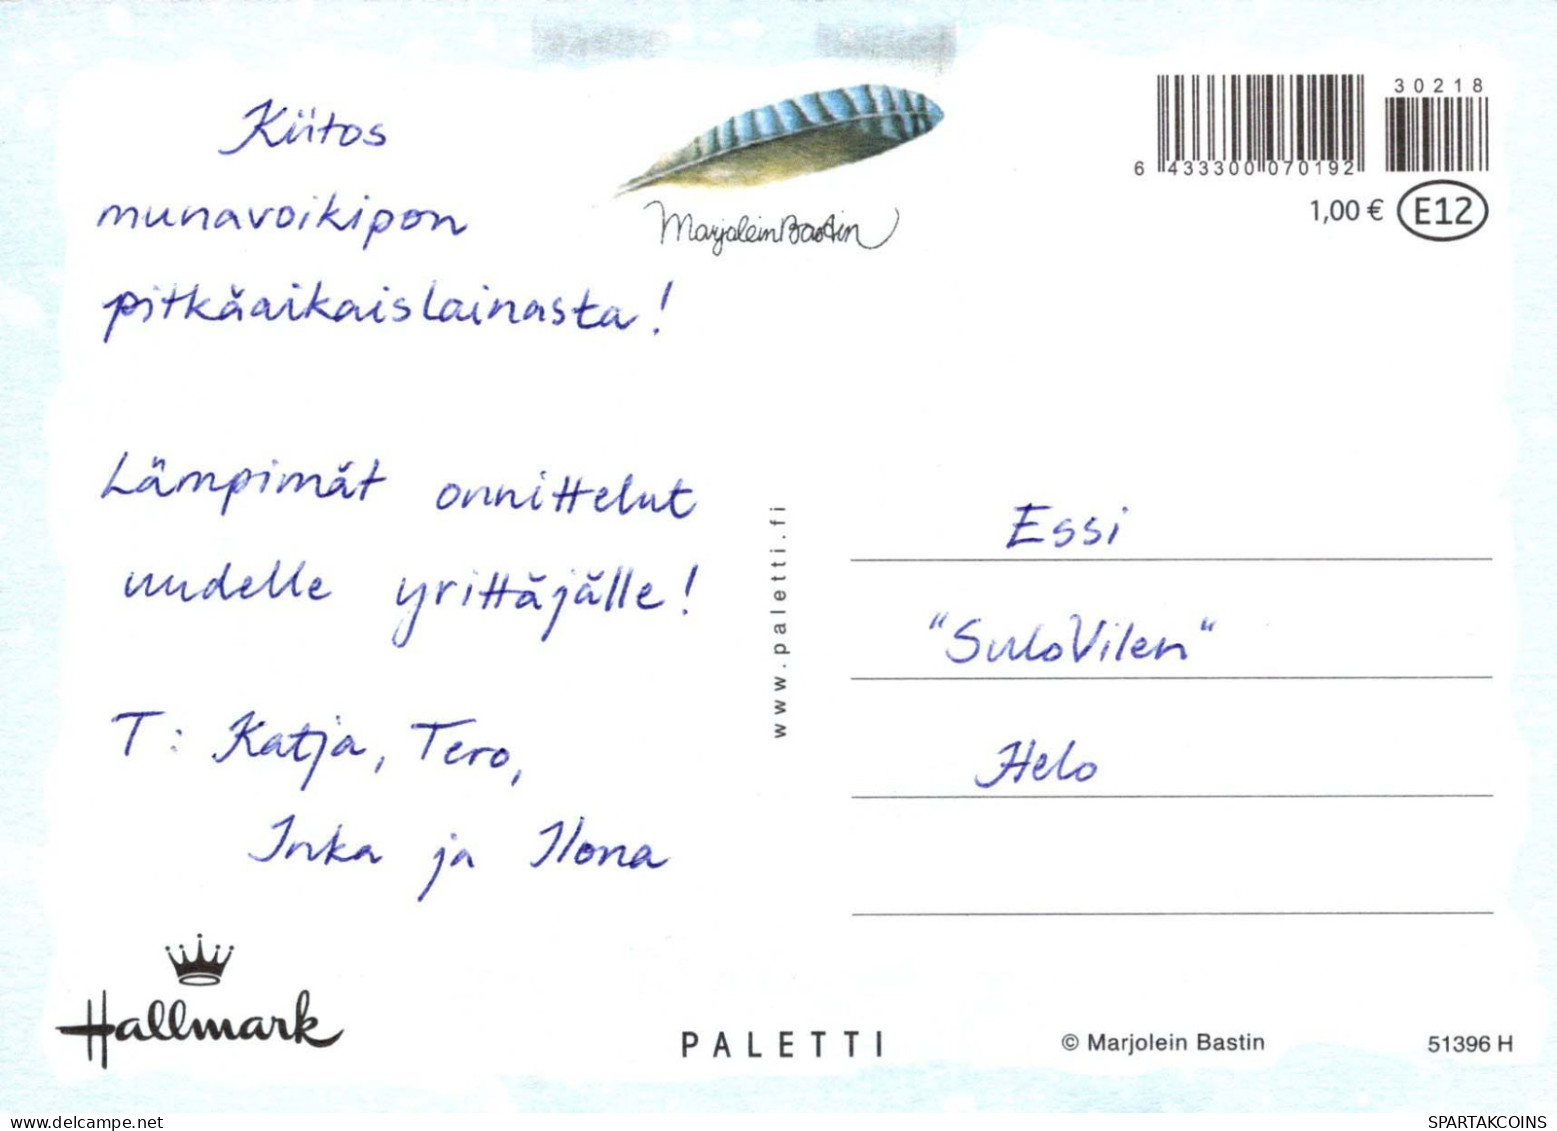 Kiitos
munavoikipon
pitkäaikaislainasta!
Lämpimät onnittelut
uudelle yrittäjälle!
T: Katja, Tero,
Inka ja Ilona
Marjolein Bastin
30218
6 433300 070192
1,00 € E12
www.paletti.fi
Essi
"SuloVilen"
Helo
Hallmark
PALETTI
© Marjolein Bastin
51396 H
SPARTAKCOINS